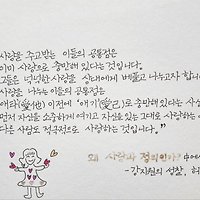 사랑을 주고받는 이들의 공통점은
이미 사랑으로 충만해 있다는 것입니다.
그들은 넉넉한 사랑을 상대에게 베풀고 나누고자 합니
사랑을 나누는 이들의 공통점은
애타(愛他) 이전에 '애기(愛己)로 충만해 있다는 사실
먼저 자신을 소중하게 여기고 자신을 있는 그대로 사랑하는 이
다른 사람도 적극적으로 사랑하는 것입니다."
왜 사랑과 정의인가? 中에서
-강지원의 성찰,